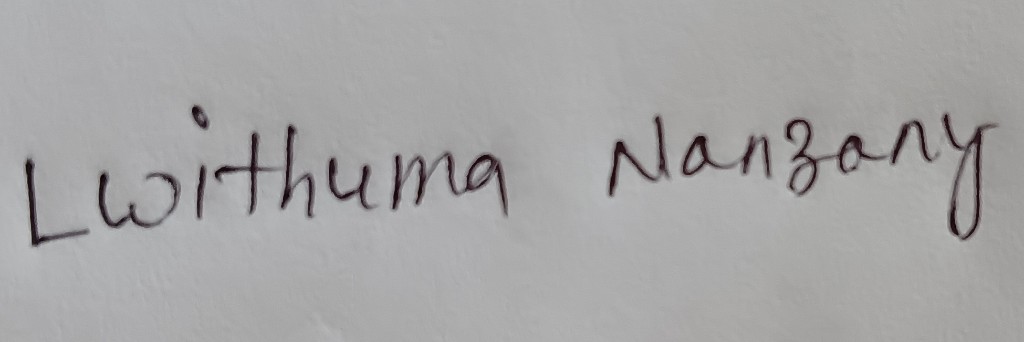 Lwithuma Nanzany